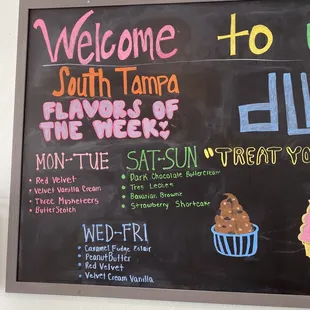 Welcome to
South Tampa
FLAVORS OF
THE WEEK:
MON-TUE
• Red Velvet
• Velvet Vanilla Cream
• Three Musketeers
• ButterScotch
SAT-SUN
• Dark Chocolate Buttercream
• Tres Leches
• Bavarian Brownie
• Strawberry Shortcake
"TREAT YO
WED-FRI
• Caramel Fudge Eclair
• Peanut Butter
• Red Velvet
• Velvet Cream Vanilla